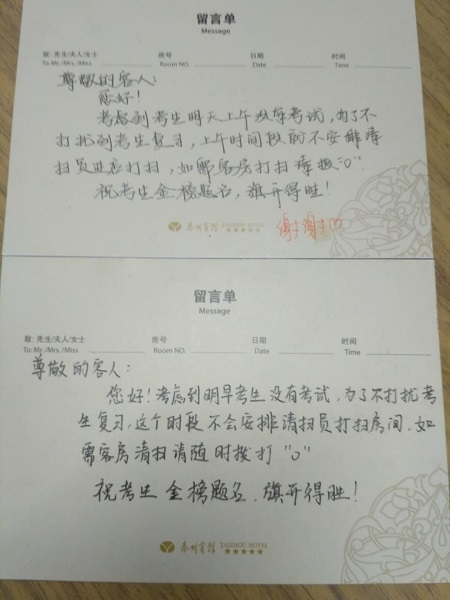 留言单
Message
致: 先生/夫人/女士 房号 日期 时间
To:Mr./Mrs./Miss Room NO. Date Time
尊敬的客人:
您好!
考虑到考生明天上午没有考试,为了不
打扰到考生复习,上午时间段前不安排清
扫员进房打扫,如需客房打扫请拨"0"
祝考生金榜题名,旗开得胜!
泰州宾馆 TAIZHOU HOTEL
谢谢
留言单
Message
致: 先生/夫人/女士 房号 日期 时间
To:Mr./Mrs./Miss Room NO. Date Time
尊敬的客人:
您好!考虑到明早考生没有考试,为了不打扰考
生复习,这个时段不会安排清扫员打扫房间,如
需客房清扫请随时拨打"0"
祝考生金榜题名,旗开得胜!
泰州宾馆 TAIZHOU HOTEL